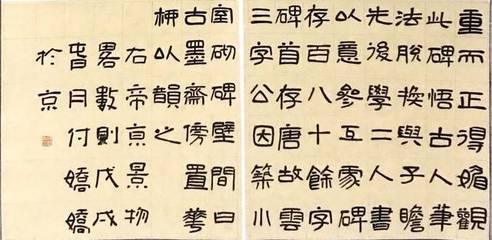 重而正得媚觀
此碑悟古人筆
法脫換與子瞻
先後學二人書
以意參互眾碑
存百八十餘字
碑首存唐故雲
三字公因築小
室砌碑壁間曰
古墨齋傍置華
柳以韻之
右帝京景物
畧數則戊戌
旾月付嬌嬌
於京